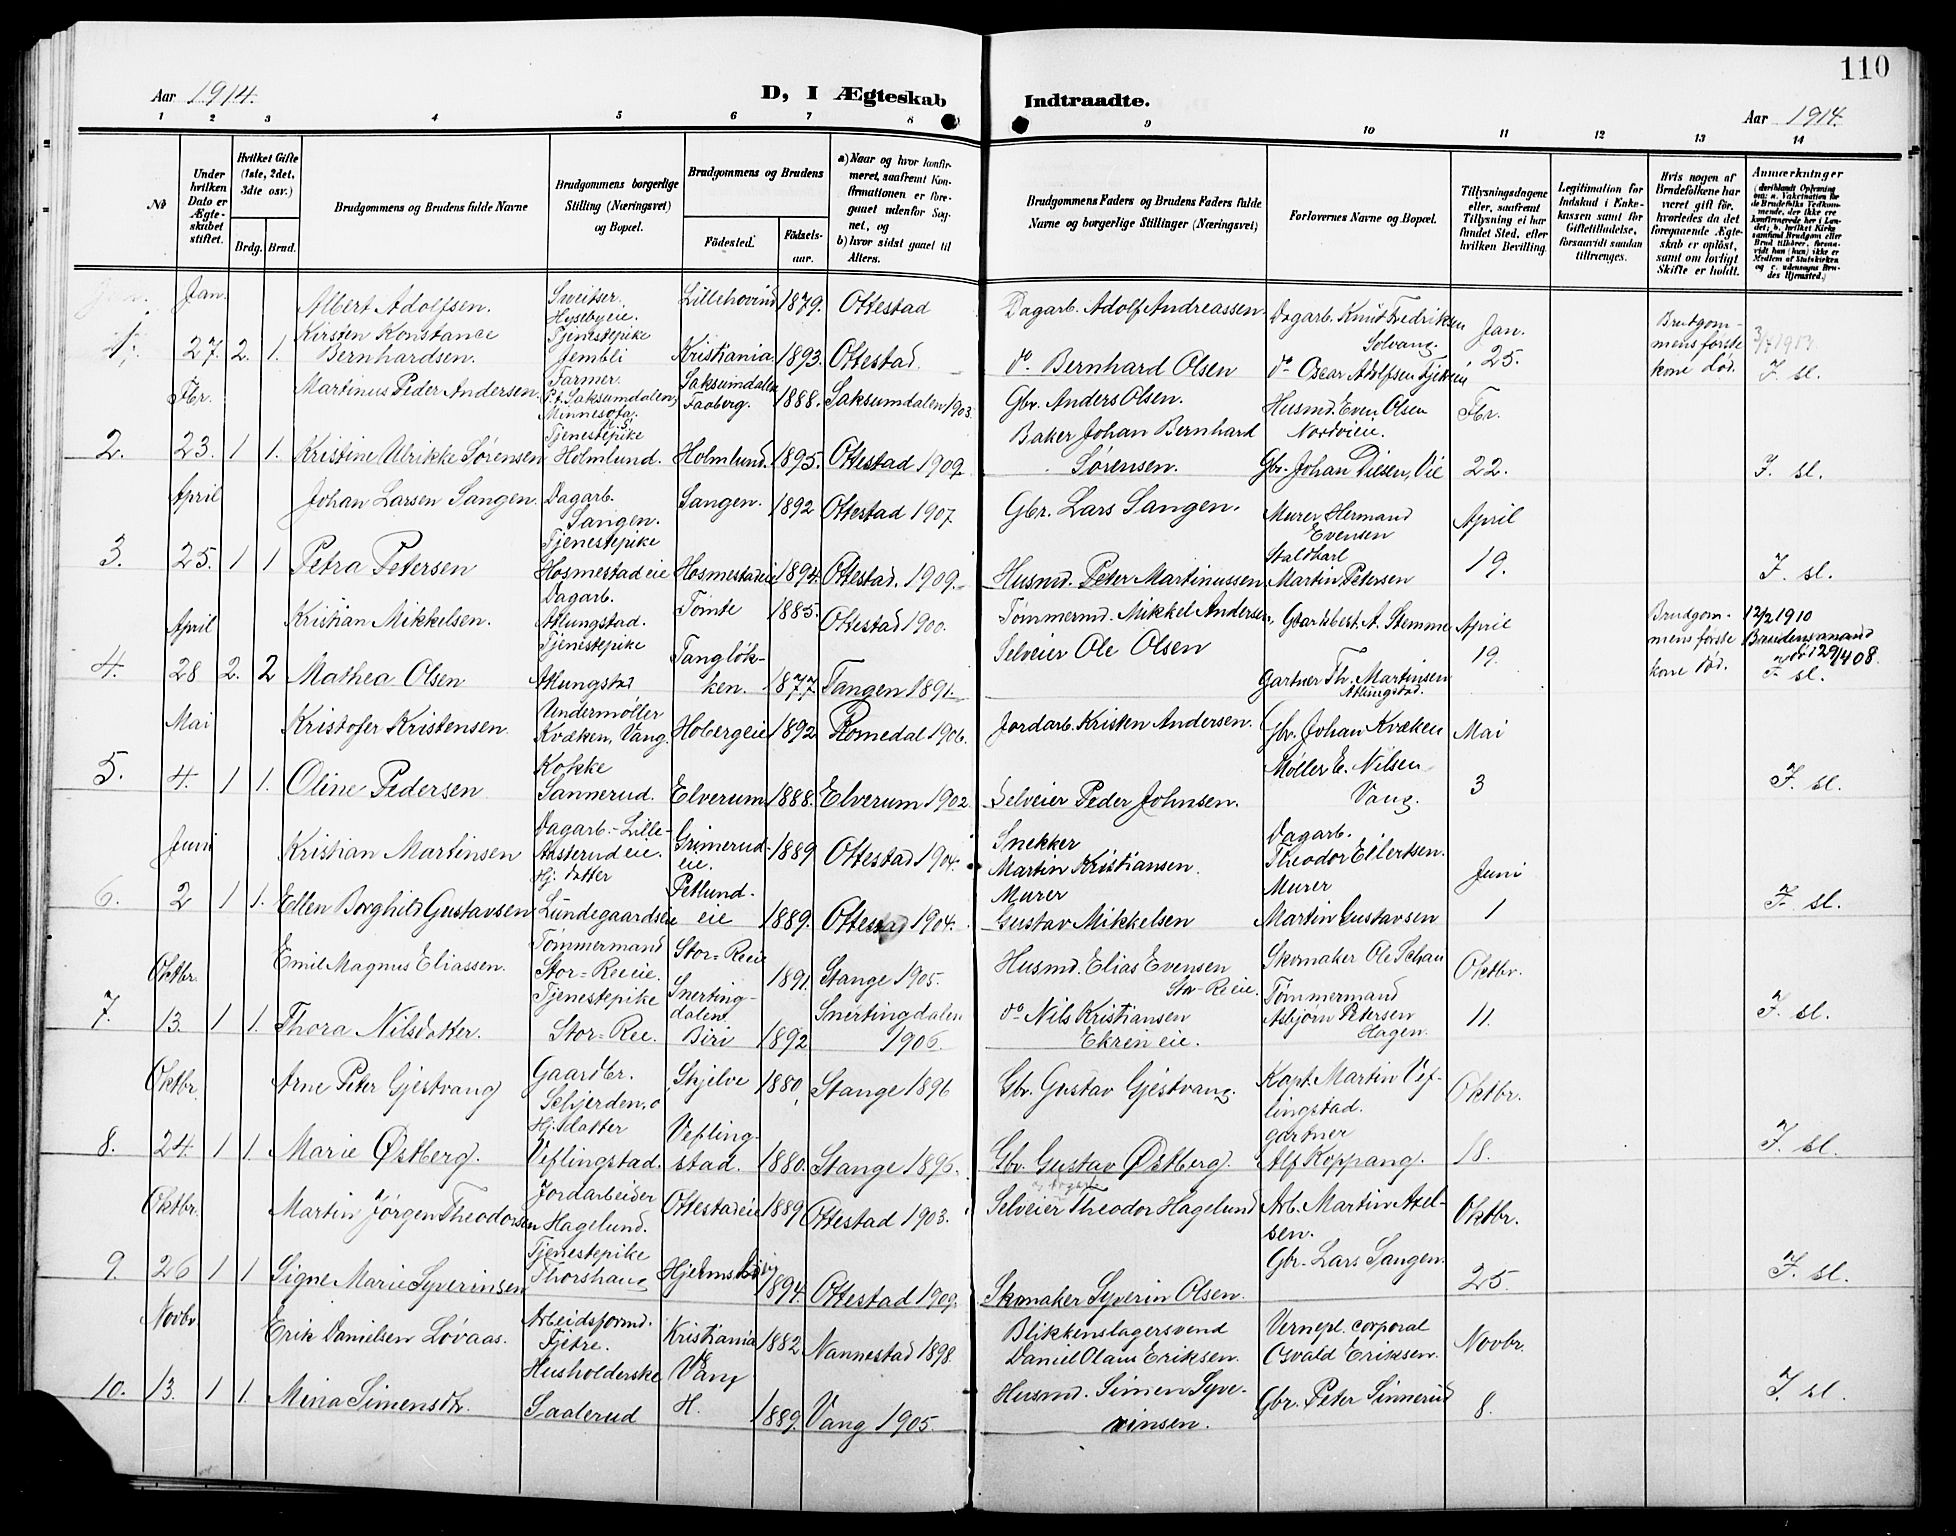 110
Aar 1914.
D, I Ægteskab Indtraadte.
Aar 1914.
1 2 3 4 5 6 7 8 9 10 11 12 13 14
No
Under hvilken Dato er Ægteskabet stiftet.
Hvilket Gifte (1ste, 2det, 3die osv.)
Brdg. Brud.
Brudgommens og Brudens fulde Navne
Brudgommens borgerlige Stilling (Næringsvei) og Bopæl.
Brudgommens og Brudens
Fødested.
Fødselsaar.
a) Naar og hvor konfirmeret, saafremt Konfirmationen er foregaaet udenfor Sognet, og
b) hvor sidst gaaet til Alters.
Brudgommens Faders og Brudens Faders fulde Navne og borgerlige Stillinger (Næringsvei)
Forlovernes Navne og Bopæl.
Tillysningsdagene eller, saafremt Tillysning ei har fundet Sted, efter hvilken Bevilling.
Legitimation for Indskud i Enkekassen samt for Giftetilladelse, forsaavidt saadan tiltrænges.
Hvis nogen af Brudefolkene har været gift før, hvorledes da det foregaaende Ægteskab er opløst, samt om lovligt Skifte er holdt.
Anmærkninger
Jan.
Albert Adolfsen. Sweitser. Hysebyeie. Lillehovind 1879. Ottestad Dagarb. Adolf Andreassen Dagarb. Knut Fredriksen Solvang. Jan.
1. 27. 2. 1. Kirsten Konstance Bernhardsen. Tjenestepike Jembli Kristiania. 1893. Ottestad. do. Bernhard Olsen do Oscar Adolfsen 25. Brudgommens første kone død. F. sl.
Fbr. Martinus Peder Andersen. Farmer. P.t. Saksumdalen, Minnesota. Saksumdalen Faaberg. 1888. Saksumdalen 1903. Gbr. Anders Olsen. Husmd. Even Olsen Nordvieie. Fbr.
2. 23. 1 1. Kristine Ulrikke Sørensen Tjenestepike Holmlund. Holmlund. 1895. Ottestad 1909. Baker Johan Bernhard Sørensen. Gbr. Johan Vie 22. F. sl.
April Johan Larsen Sangen. Dagarb. Sangen. Sangen. 1892 Ottestad 1907. Gbr. Lars Sangen. Murer Hermand Evensen April
3. 25. 1 1 Petra Petersen Tjenestepike Hosmestadeie Hosmestadeie 1894. Ottestad. 1909. Husmd. Peter Martinussen Staldkarl Martin Petersen 19. F. sl.
April Kristian Mikkelsen. Dagarb. Atlungstad. Tømte 1885. Ottestad 1900. Tømmermd. Mikkel Andersen. Gaardsbest. A. Stemme April Brudgommens første kone død. 12/2 1910
4. 28 2. 2 Mathea Olsen Tjenestepike Atlungstad Tangløkken. 1877. Tangen 1891. Selveier Ole Olsen Gartner Th. Martinsen Atlungstad. 19. Brudens mand d. 12/4 08. F. sl.
Mai Kristofer Kristensen Undermøller Kvæken, Vang. Hobergeie 1892 Romedal 1906. Jordarb. Kristen Andersen. Gbr. Johan Kvæken Mai
5. 4. 1 1. Oline Pedersen Kokke Sannerud. Elverum 1888. Elverum 1902. Selveier Peder Johnsen. Møller E. Nilsen Vang. 3 F. sl.
Juni Kristian Martinsen Dagarb.- Lille-Aasterudeie. Grimerudeie. 1889 Ottestad 1904. Snekker Martin Kristiansen. Dagarb. Theodor Eilertsen. Juni
6. 2 1 1. Ellen Borghild Gustavsen Hj. datter Lundegaardseie Petlundeie 1889. Ottestad 1904. Murer Gustav Mikkelsen Murer Martin Gustavsen 1 F. sl.
Oktbr. Emil Magnus Eliassen. Tømmermand Stor-Reeie. Stor-Reeie 1891. Stange 1905. Husmd. Elias Evensen Stor-Reeie. Skomaker Ole Schau Oktbr.
7. 13. 1 1. Thora Nilsdatter. Tjenestepike Stor-Ree. Snertingdalen, Biri 1892 Snertingdalen 1906. do Nils Kristiansen Ekreneie. Tømmermand Asbjørn Petersen Hagen. 11. F. sl.
Oktbr. Arne Peter Gjestvang Gaardbr. Schjerden. Skjelve 1880 Stange 1896 Gbr. Gustav Gjestvang. Kapt. Martin Veflingstad. Oktbr.
8. 24. 1 1. Marie Østberg. Hj. datter Veflingstad. Veflingstad. 1880. Stange 1896. Gbr. Gustav Østberg. gartner Alf Koppang. 18. F. sl.
Oktbr. Martin Jørgen Theodorsen Jordarbeider Hagelund. Ottestadeie 1889 Ottestad 1903. Selveier Theodor Hagelund Arb. Martin Axelsen. Oktbr.
9. 26 1 1 Signe Marie Syverinsen Tjenestepike Thorshaug 1894. Ottestad 1909. Skomaker Syverin Olsen. Gbr. Lars Sangen. 25. F. sl.
Novbr. Erik Danielsen Løvaas. Arbeidsformd. Fjetre. Kristiania 1882. Nannestad 1898. Blikkenslagersvend Daniel Olaus Eriksen. Vernepl. corporal Osvald Eriksen. Novbr.
10. 13. 1 1. Mina Simensdtr. Husholderske Saalerud Vang H. 1889. Vang 1905. Husmd. Simen Syverinsen. Gbr. Peter Sinnerud 8. F. sl.